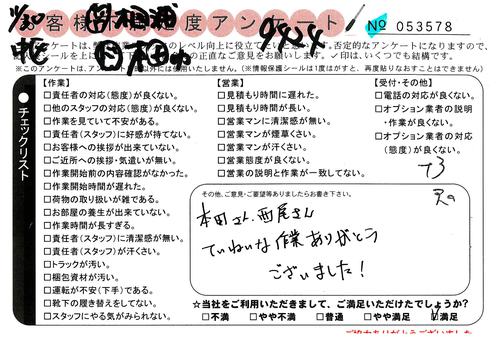 お客様満足度アンケート
№ 053578
11/30
9424
※このアンケートは、
【作業】
□責任者の対応(態度)が良くない。
□他のスタッフの対応(態度)が良くない。
□作業を見ていて不安がある。
□責任者(スタッフ)に好感が持てない。
□お客様への挨拶が出来ていない。
□ご近所への挨拶・気遣いが無い。
□作業開始前の内容確認がなかった。
□作業開始時間が遅れた。
□荷物の取り扱いが雑である。
□お部屋の養生が出来ていない。
□作業時間が長すぎる。
□責任者(スタッフ)に清潔感が無い。
□責任者(スタッフ)が汗くさい。
□トラックが汚い。
□梱包資材が汚い。
□運転が不安(下手)である。
□靴下の履き替えをしてない。
□スタッフにやる気がみられない。
チェックリスト
【営業】
□見積もり時間に遅れた。
□見積もり時間が長い。
□営業マンに清潔感が無い。
□営業マンが煙草くさい。
□営業マンが汗くさい。
□営業態度が良くない。
□営業の説明と作業が一致してない。
【受付・その他】
□電話の対応が良くない。
□オプション業者の説明
・作業が良くない。
□オプション業者の対応
(態度)が良くない。
その他、ご意見・ご要望等ありましたらお書き下さい。
本田さん、西尾さん
ていねいな作業ありがとう
ございました!
☆当社をご利用いただきまして、ご満足いただけたでしょうか?
□不満 □やや不満 □普通 □やや満足 ☑満足
ご協力ありがとうございました